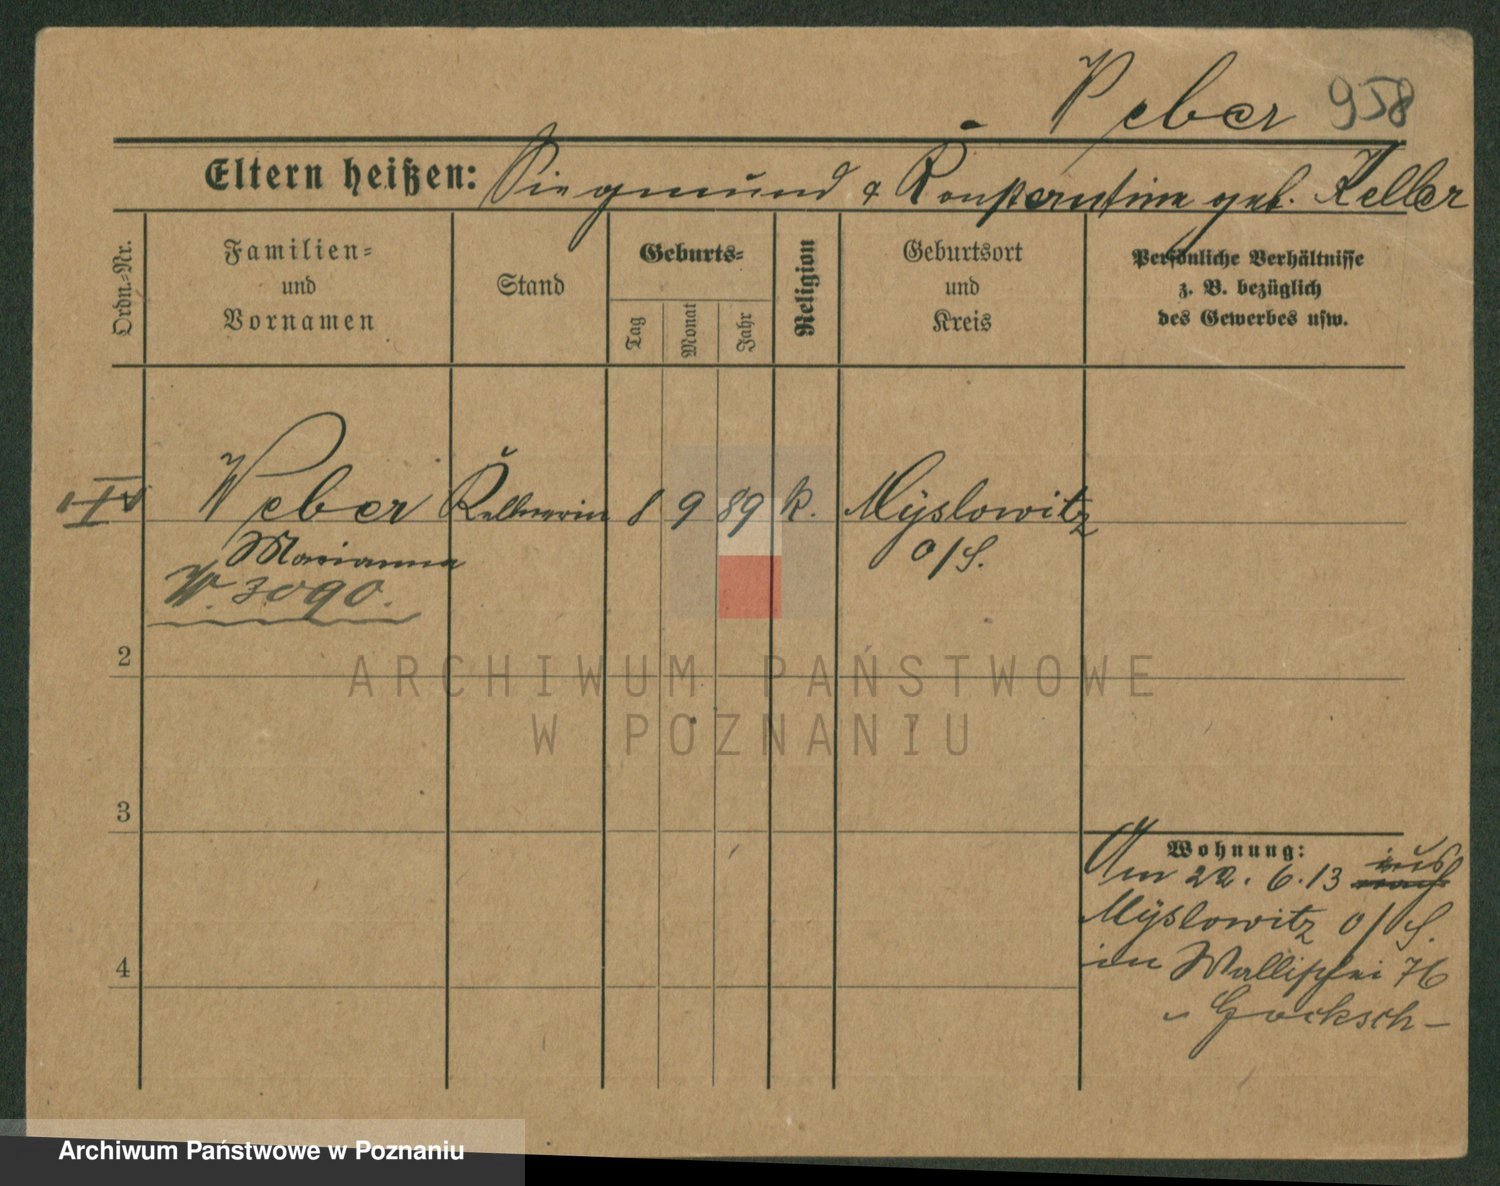 Weber 958
Eltern heißen: Siegmund & Konstantine geb. Keller
Ordn.-Nr.
Familien-
und
Vornamen
Stand
Geburts-
Tag
Monat
Jahr
Religion
Geburtsort
und
Kreis
Persönliche Verhältnisse
z. B. bezüglich
des Gewerbes usw.
Weber Kellnerin 8 9 89 k. Myslowitz
Marianna O/S.
W. 3090.
2
3
4
Wohnung:
Am 22. 6. 13 aus
Myslowitz O/S.
in Wallischei 76
Gocksch-
ARCHIWUM PAŃSTWOWE
W POZNANIU
Archiwum Państwowe w Poznaniu